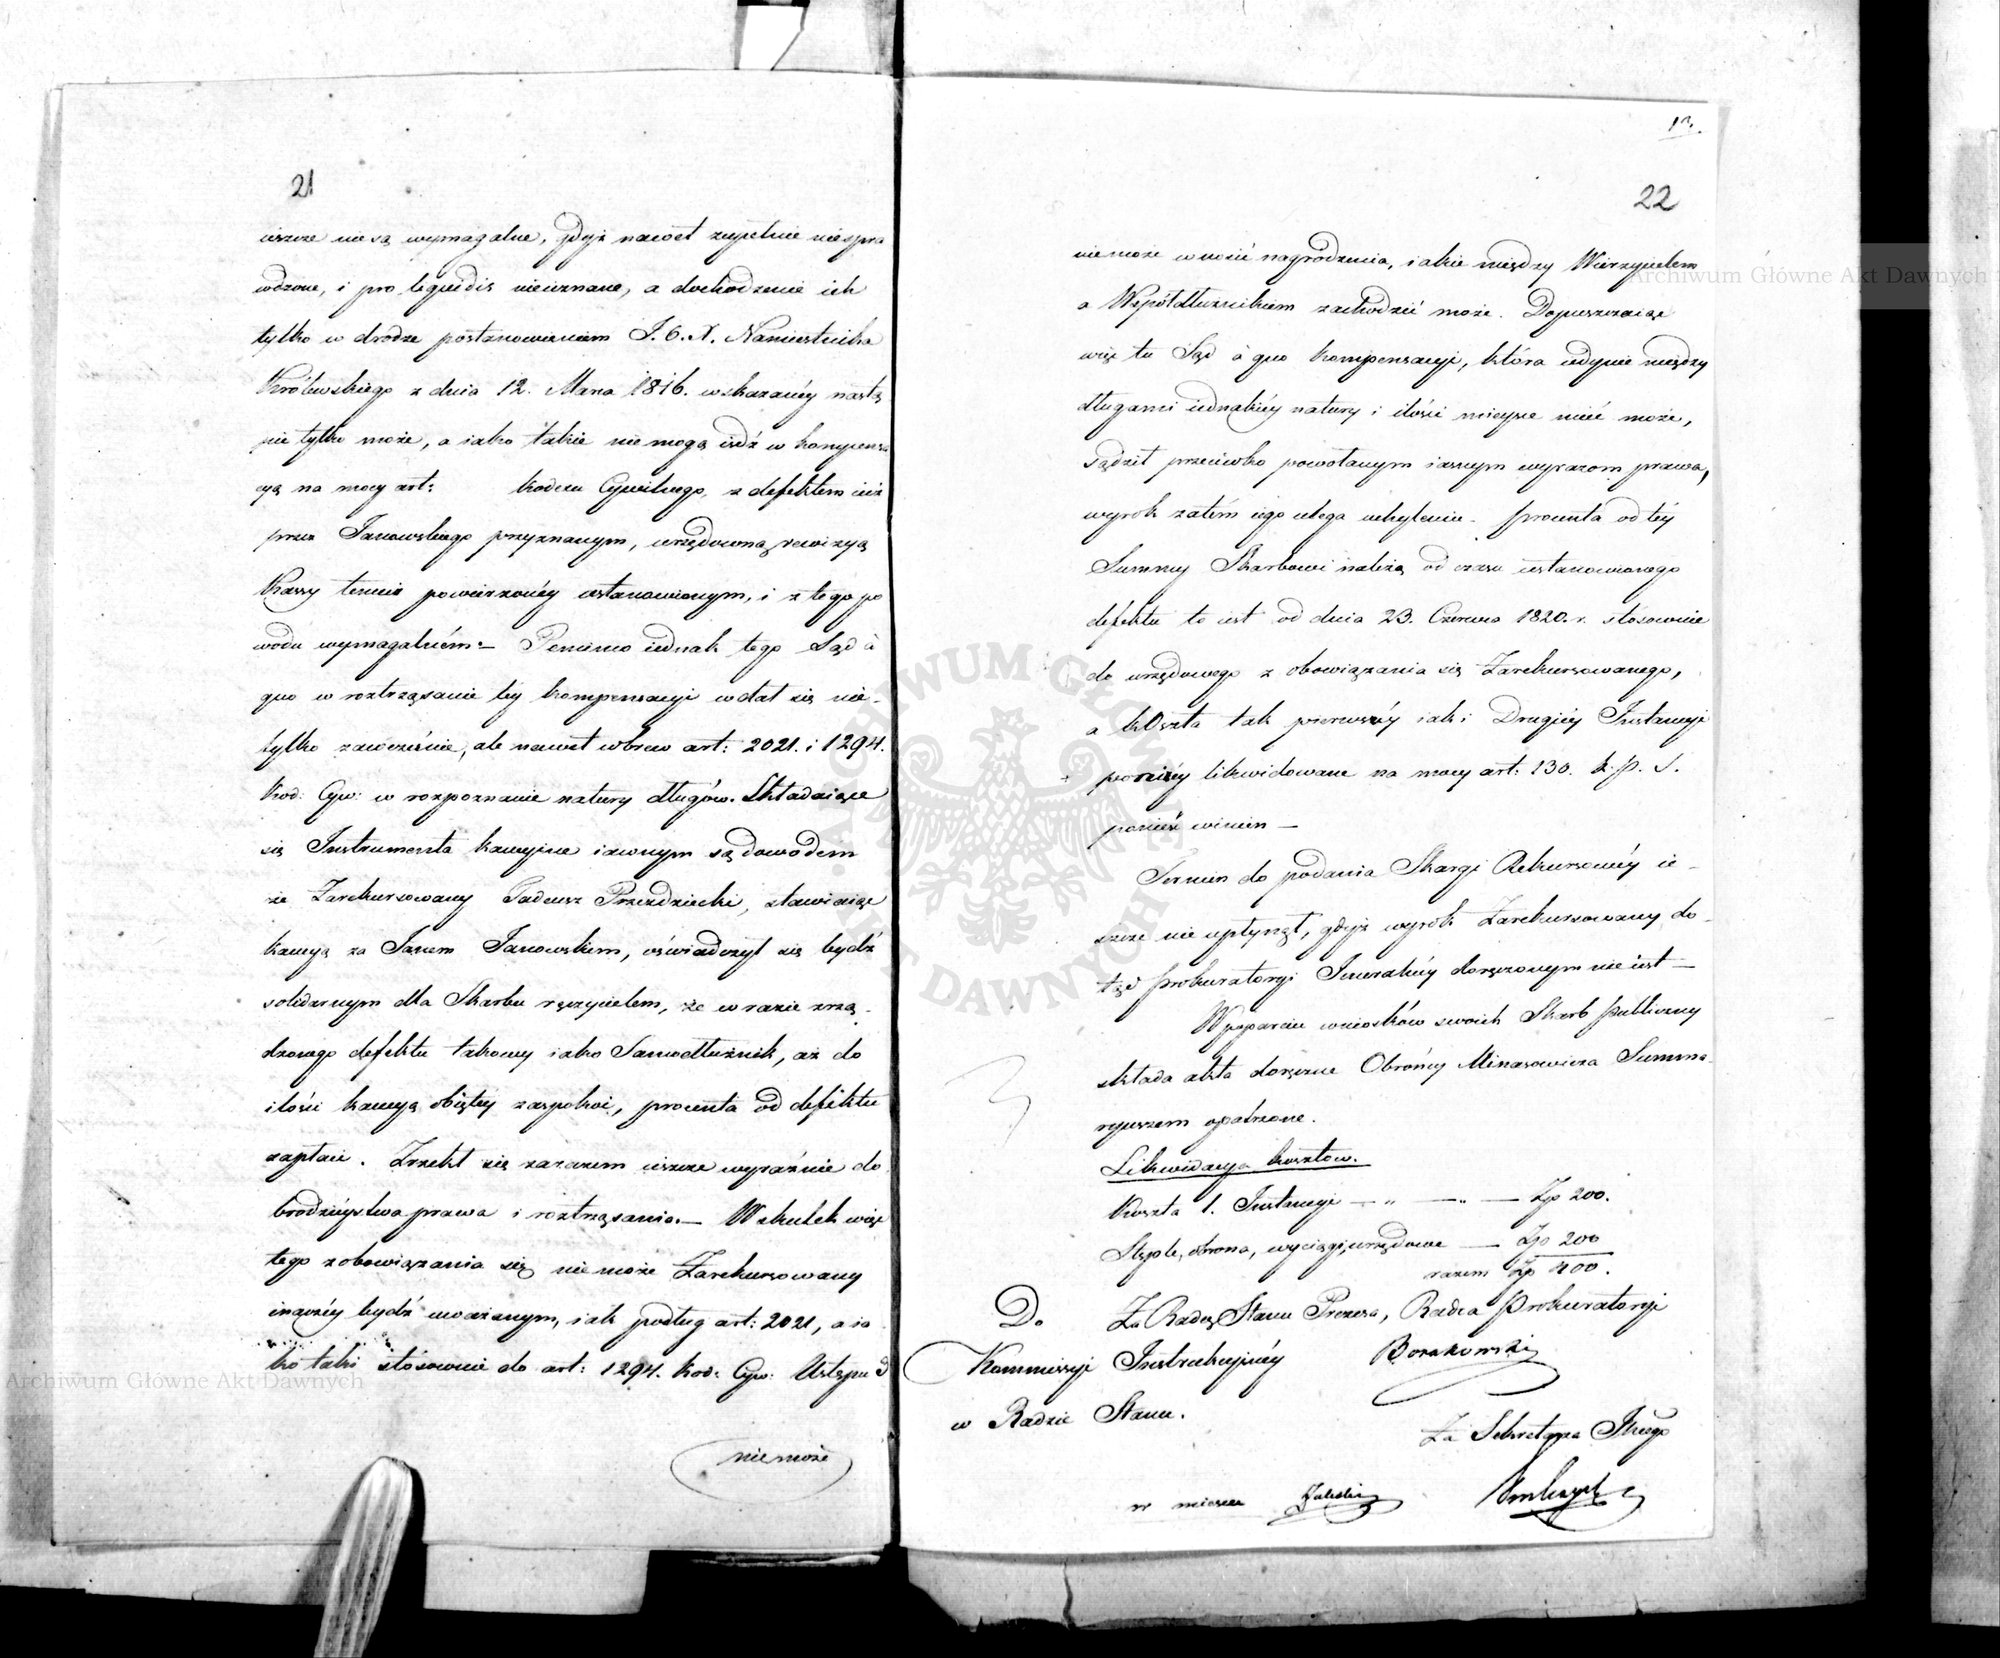 21
ieszcze nie są wymagalne, gdyż nawet zupełnie niespra
wdzone, i pro liquidis nieuznane, a dochodzenie ich
tylko w drodze postanowieniem J. O. X. Namiestnika
Królewskiego z dnia 12. Marca 1816. wskazanéy nastą
pić tylko może, a iako takie nie mogą iść w kompensa
cyą na mocy art: kodexu Cywilnego, z defektem iuż
przez Janowskiego przyznanym, urzędowną rewizyą
Kassy temuż powierzonéy ustanowionym, i z tego po
wodu wymagalném. – Pomimo iednak tego Sąd à
quo w roztrząsanie téy kompensacyi wdał się nie-
tylko zawcześnie, ale nawet wbrew art: 2021. i 1294.
Kod: Cyw: w rozpoznanie natury długów. Składaiące
się Instrumenta kaucyine iawnym są dowodem
że Zarekursowany Tadeusz Przezdziecki, stawiaiąc
kaucyą za Janem Janowskim, oświadczył się bydź
solidarnym dla Skarbu ręczycielem, że w razie zrzą-
dzonego defektu takowy iako Samodłużnik, aż do
ilości kaucyą obiętéy zaspokoi, procenta od defektu
zapłaci. Zrzekł się zarazem ieszcze wyraźnie do
brodzieystwa prawa i roztrząsania. – W skutek więc
tego zobowiązania się nie może Zarekursowany
inaczéy bydź uważanym, iak podług art: 2021, a ia
ko taki stósownie do art: 1294. Kod: Cyw: Ustępu 3
nie może
13.
22
nie może wnosić nagrodzenia, iakie między Wierzycielem
a Współdłużnikiem zachodzić może. Dopuszczaiąc
więc tu Sąd à quo kompensacyi, która iedynie między
długami iednakiéy natury i ilości mieysce mieć może,
sądził przeciwko powołanym iasnym wyrazom prawa,
wyrok zatém iego ulega uchyleniu. – Procenta od téy
Summy Skarbowi należą od czasu ustanowionego
defektu to iest od dnia 23. Czerwca 1820. r. stósownie
do urzędowego zobowiązania się Zarekursowanego,
a koszta tak pierwszéy iak i Drugiéy Instancyi
poniżéy likwidowane na mocy art: 130. k. p. S.
ponieść winien –
Termin do podania Skargi Rekursowéy ie-
szcze nie upłynął, gdyż wyrok Zarekursowany do-
tąd Prokuratoryi Jeneralnéy doręczonym nie iest –
W poparciu wniosków swoich Skarb Publiczny
składa akta doręczne Obrońcy Minasowicza Summa-
ryuszem opatrzone.
Likwidacya kosztów.
Koszta 1. Instancyi — „ — „ — Zp 200.
Stęple, obrona, wyciągi, urzędowe — Zp 200
razem Zp 400.
D. Za Radcę Stanu Prezesa, Radca Prokuratoryi
Kommissyi Instrukcyinéy Borakowski
w Radzie Stanu.
Za Sekretarza Jlnego
w mieyscu Zaleski